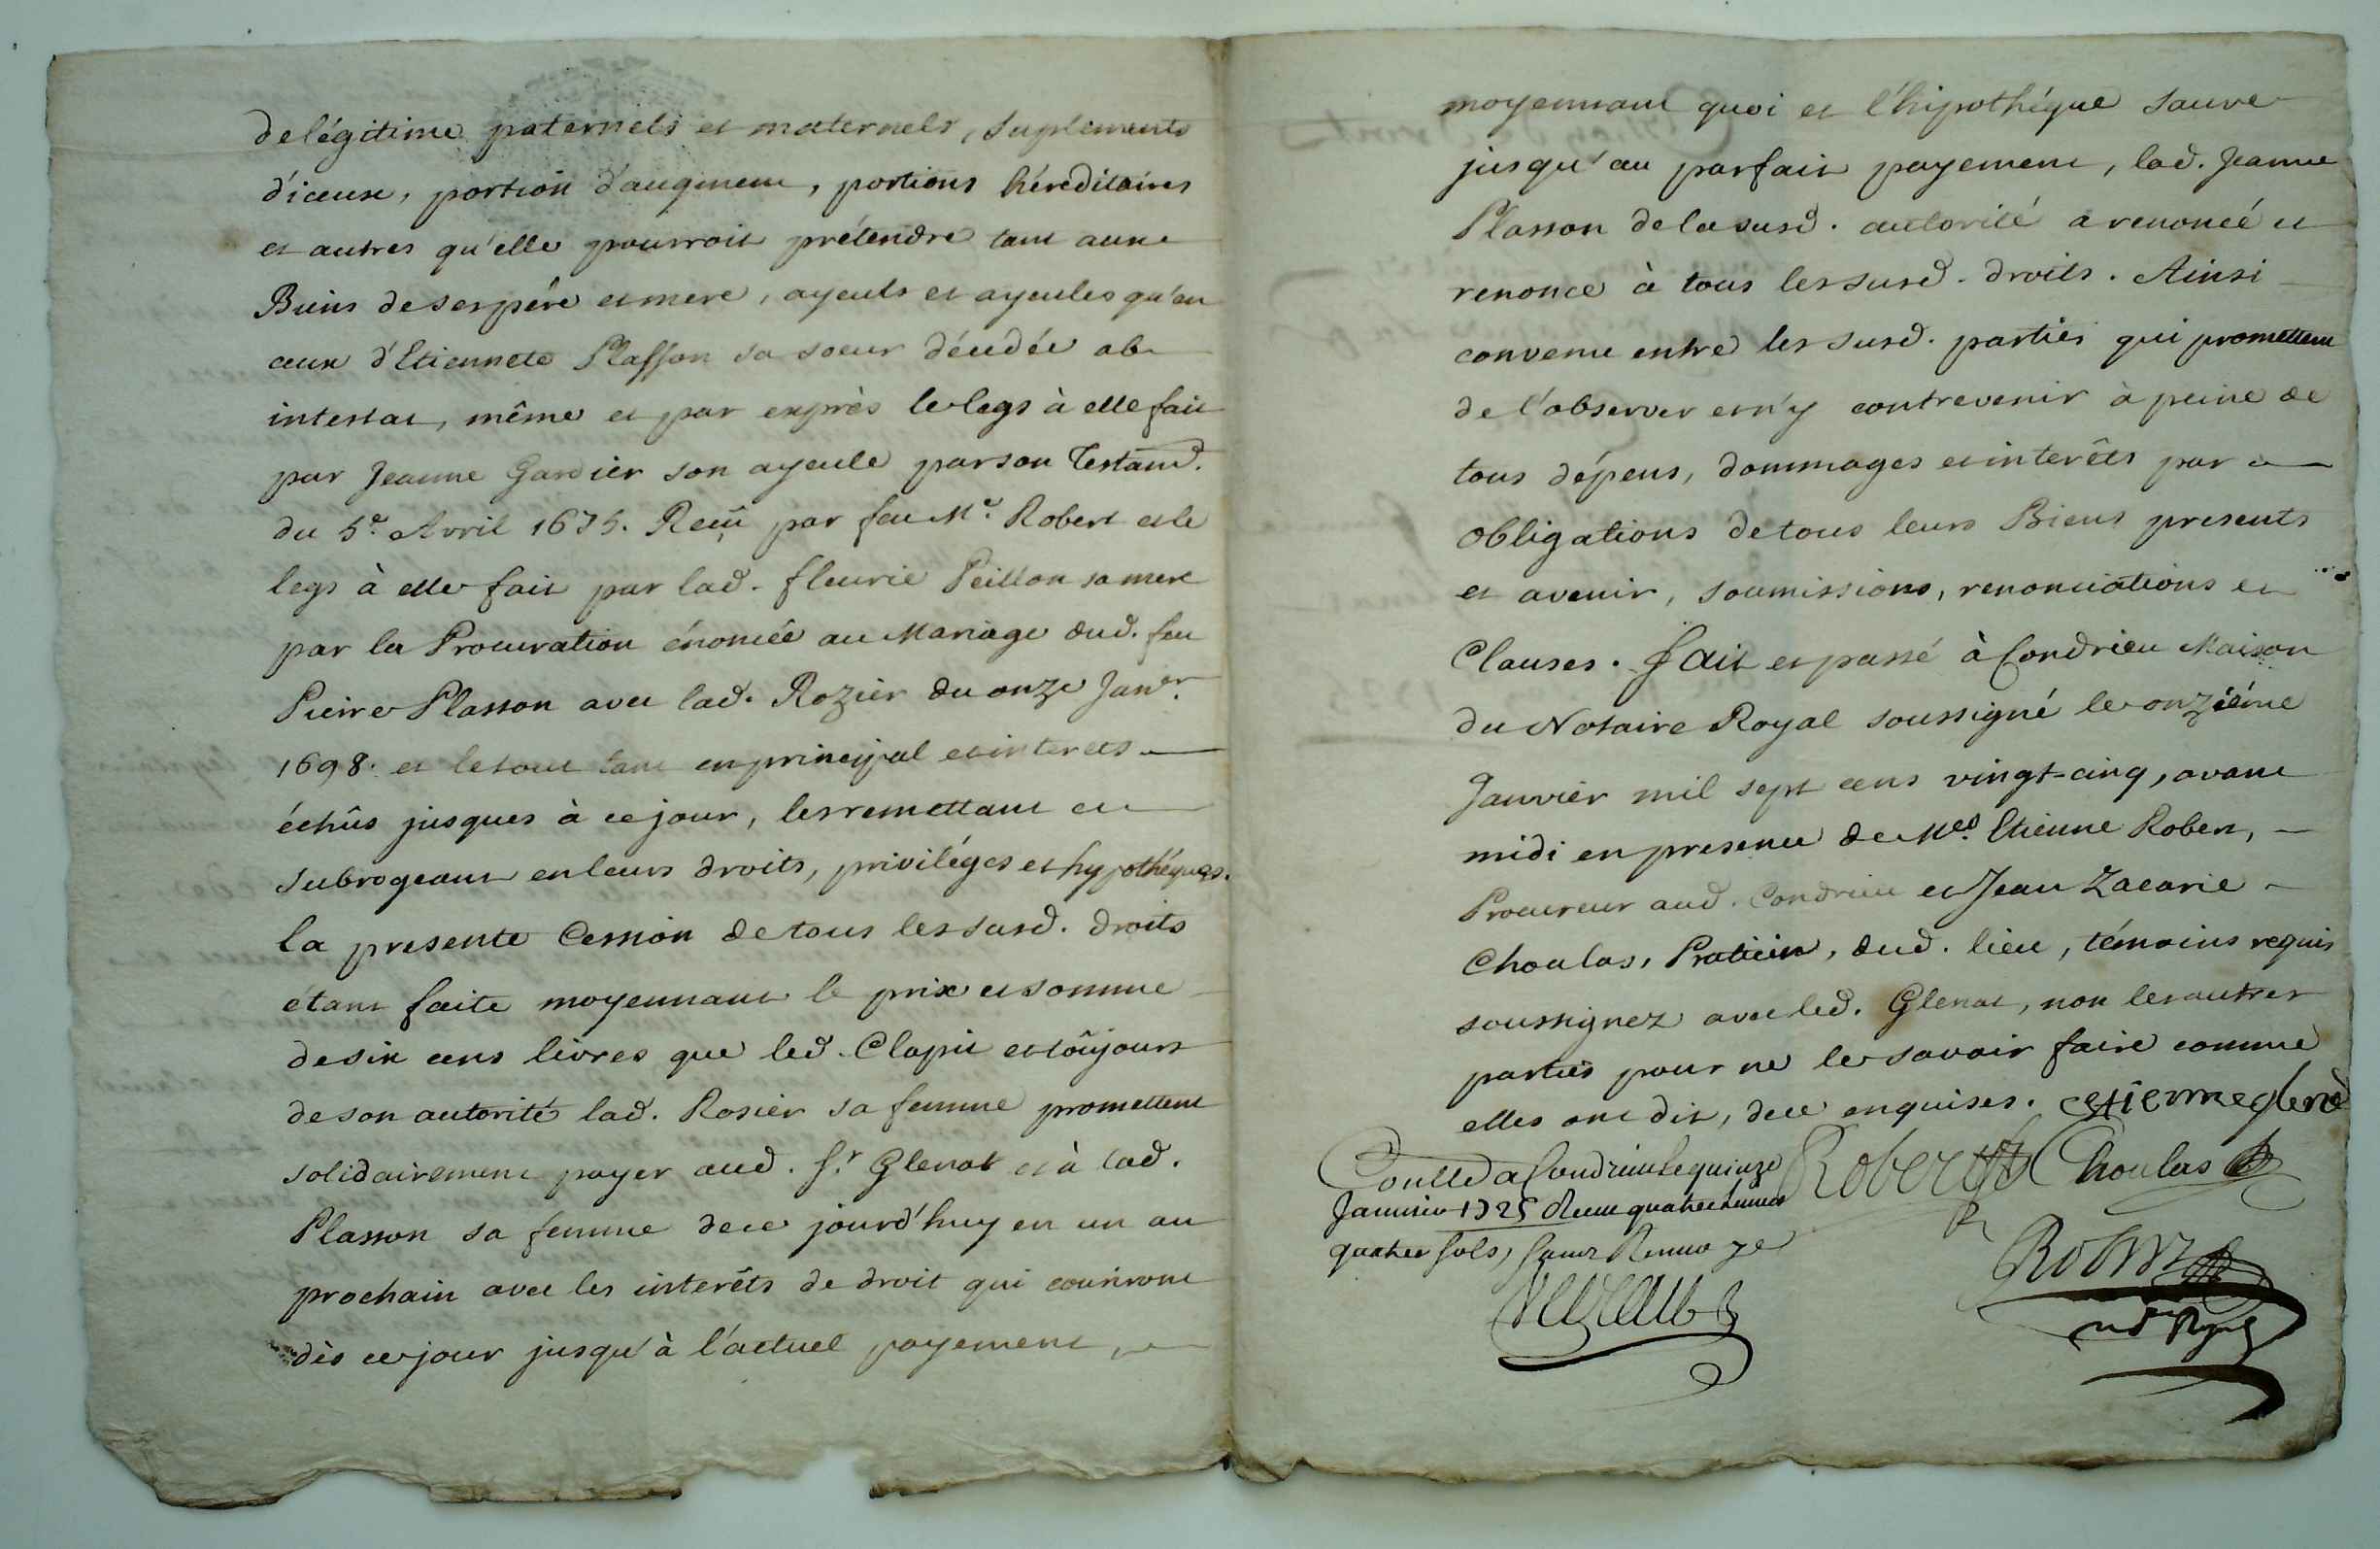 de légitime paternels et maternels, suplements
d'iceux, portion d'augment, portions héréditaires
et autres qu'elle pourroit prétendre tant aux
Biens de ses pére et mere, ayeuls et ayeules qu'en
ceux d'Etiennete Plasson sa soeur décédée ab
intestat, même et par exprès le legs à elle fait
par Jeanne Gardier son ayeule par son Testamd.
du 5e. Avril 1675. Reçû par feu Me. Robert et le
legs à elle fait par lad. fleurie Peillon sa mere
par la Procuration énoncée au Mariage dud. feu
Pierre Plasson avec lad. Rozier du onze Janer.
1698. et le tout tant en principal et interets
échûs jusques à ce jour, les remettant et
subrogeant en leurs droits, priviléges et hypothéques.
la presente Cession de tous les susd. droits
étant faite moyennant le prix et somme
de six cens livres que led. Clapit et toûjours
de son autorité lad. Rosier sa femme promettent
solidairement payer aud. Sr. Glenat et à lad.
Plasson sa femme de ce jourd'huy en un an
prochain avec les interêts de droit qui courront
dès ce jour jusqu'à l'actuel payement,
moyennant quoi et l'hipothéque sauve
jusqu'au parfait payement, lad. Jeanne
Plasson de la susd. autorité a renoncé et
renonce à tous les susd. droits. Ainsi
convenu entre les susd. parties qui promettent
de l'observer et n'y contrevenir à peine de
tous dépens, dommages et interêts par
obligations de tous leurs Biens presents
et avenir, soumissions, renonciations et
Clauses. fait et passé à Condrieu Maison
du Notaire Royal soussigné le onziéme
Janvier mil sept cens vingt-cinq, avant
midi en presence de Mes. Etienne Robert,
Procureur aud. Condrieu et Jean Zacarie
Choulas, Praticien, dud. lieu, témoins requis
soussignez avec led. Glenat, non les autres
parties pour ne le savoir faire comme
elles ont dit, de ce enquises. etienne glenat
Conllé a Condrieu le quinze Robert Choulas
Janvier 1725 Receu quatre livres
quatre sols, sauf
Robert